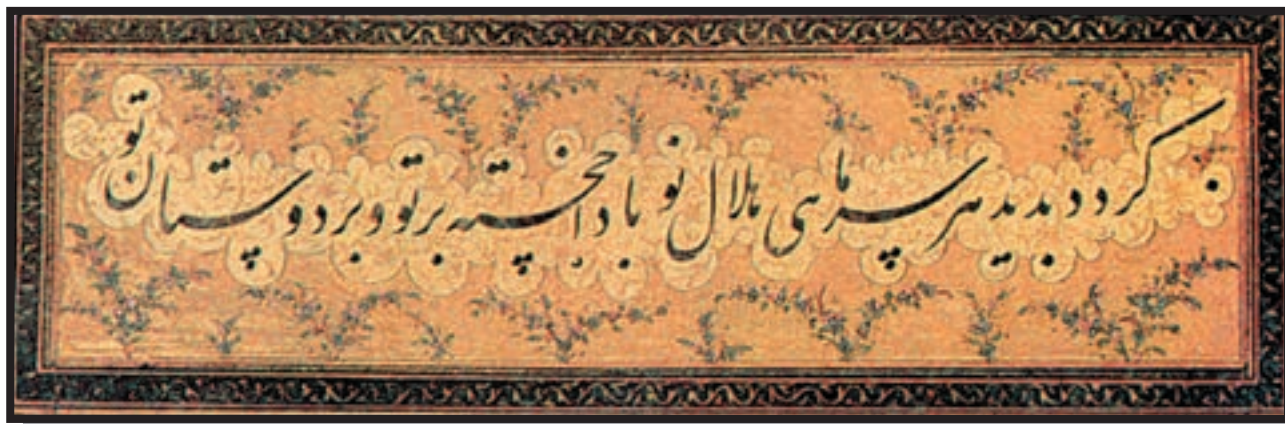 گردد پدید هر سر ماهی هلال نو بادا خجسته بر تو و بر دوستان تو